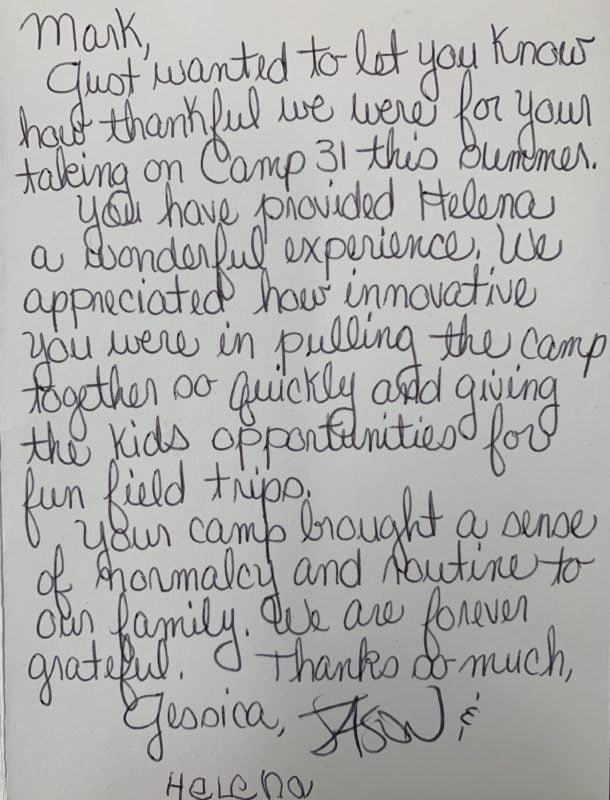 Mark,
Just wanted to let you know
how thankful we were for your
taking on Camp 31 this summer.
You have provided Helena
a wonderful experience. We
appreciated how innovative
you were in pulling the camp
together so quickly and giving
the kids opportunities for
fun field trips.
Your camp brought a sense
of normalcy and routine to
our family. We are forever
grateful. Thanks so much,
Jessica, JASON &
HeLeNa